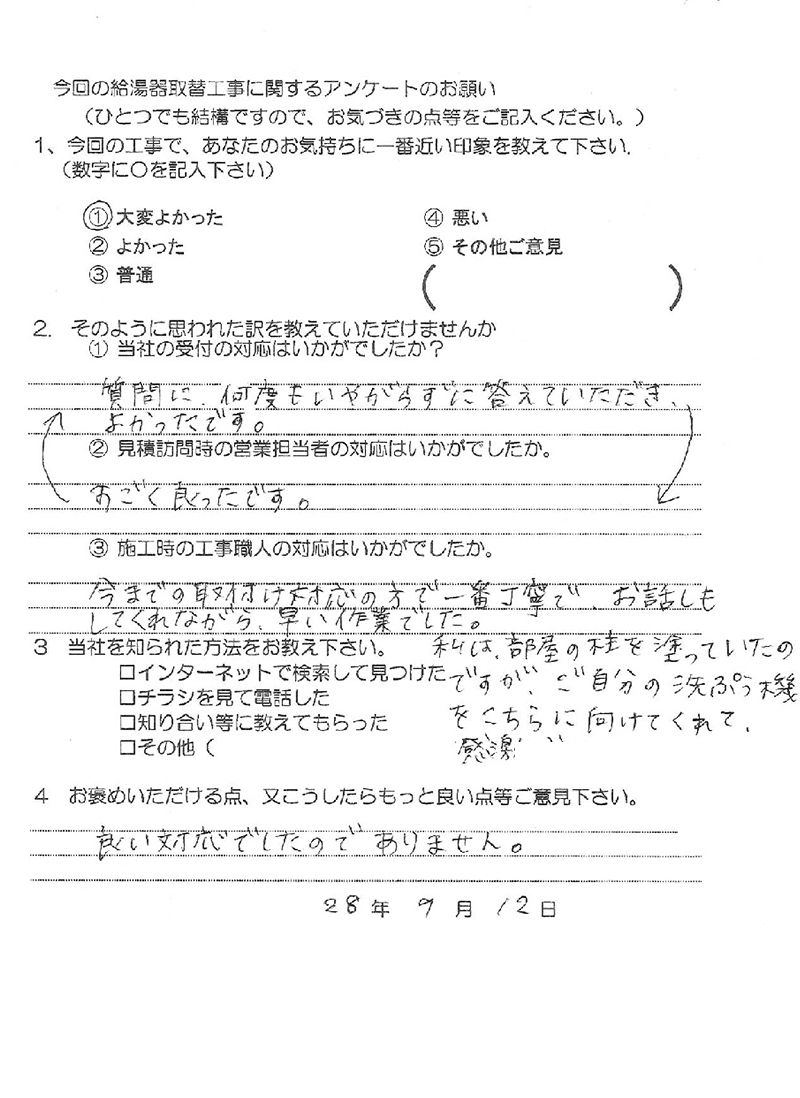 今回の給湯器取替工事に関するアンケートのお願い
（ひとつでも結構ですので、お気づきの点等をご記入ください。）
1、今回の工事で、あなたのお気持ちに一番近い印象を教えて下さい.
（数字に〇を記入下さい）
① 大変よかった
② よかった
③ 普通
④ 悪い
⑤ その他ご意見
（ ）
2. そのように思われた訳を教えていただけませんか
① 当社の受付の対応はいかがでしたか？
質問に、何度もいやがらずに答えていただき、
よかったです。
② 見積訪問時の営業担当者の対応はいかがでしたか。
すごく良ったです。
③ 施工時の工事職人の対応はいかがでしたか。
今までの取付け対応の方で一番丁寧で、お話しも
してくれながら、早い作業でした。
私は、部屋の柱を塗っていたの
ですが、ご自分の洗ぷう機
をこちらに向けてくれて、
感激
3 当社を知られた方法をお教え下さい。
□インターネットで検索して見つけた
□チラシを見て電話した
□知り合い等に教えてもらった
□その他（
4 お褒めいただける点、又こうしたらもっと良い点等ご意見下さい。
良い対応でしたのでありません。
28年 9月 12日